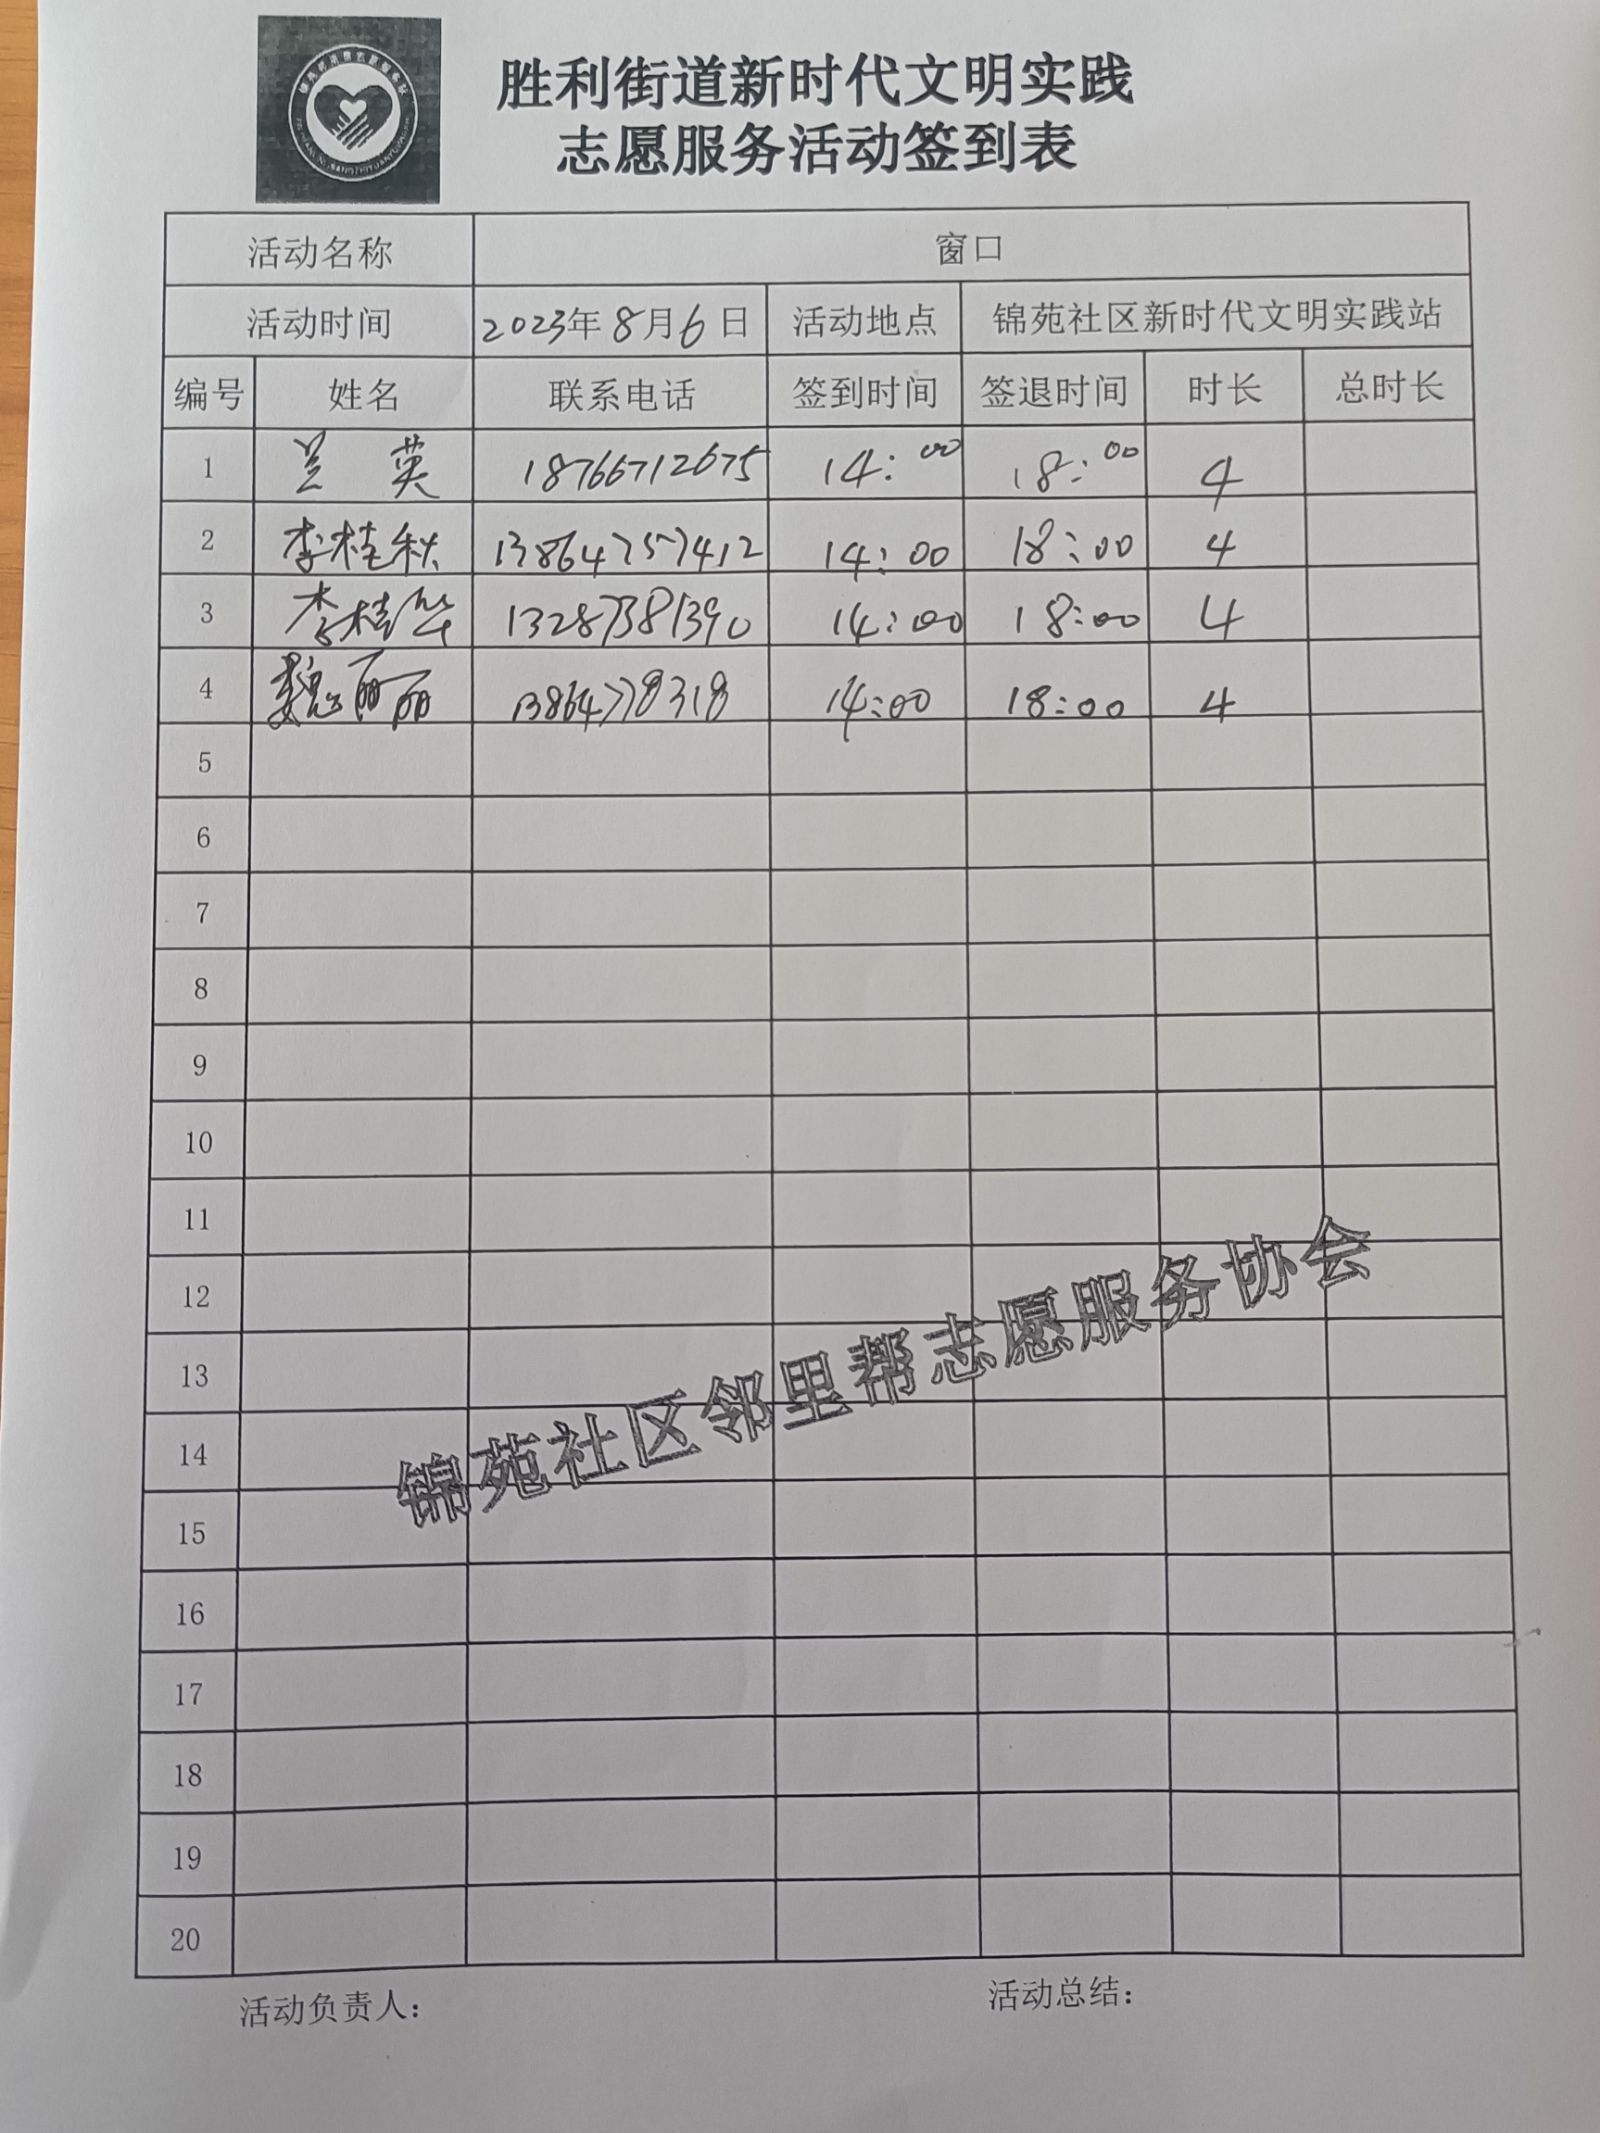 胜利街道新时代文明实践
志愿服务活动签到表
活动名称 窗口
活动时间 2023年8月6日 活动地点 锦苑社区新时代文明实践站
编号 姓名 联系电话 签到时间 签退时间 时长 总时长
1 兰英 18766712675 14:00 18:00 4
2 李桂秋 13864757412 14:00 18:00 4
3 李桂华 13287381390 14:00 18:00 4
4 魏丽丽 13864778318 14:00 18:00 4
5
6
7
8
9
10
11
12
13
14
15
16
17
18
19
20
锦苑社区邻里帮志愿服务协会
活动负责人: 活动总结: